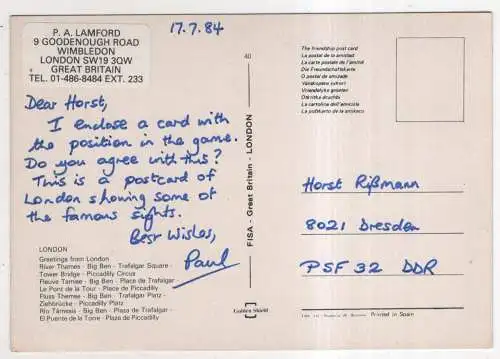 P. A. LAMFORD
9 GOODENOUGH ROAD
WIMBLEDON
LONDON SW19 3QW
GREAT BRITAIN
TEL. 01-486-8484 EXT. 233
17.7.84
Dear Horst,
I enclose a card with
the position in the game.
Do you agree with this?
This is a postcard of
London showing some of
the famous sights.
Best Wishes,
Paul
LONDON
Greetings from London
River Thames - Big Ben - Trafalgar Square -
Tower Bridge - Piccadilly Circus
Fleuve Tamise - Big Ben - Place de Trafalgar
Le Pont de la Tour - Place de Piccadilly
Fluss Themse - Big Ben - Trafalgar Platz -
Ziehbrücke - Piccadilly Platz
Río Támesis - Big Ben - Plaza de Trafalgar -
El Puente de la Torre - Plaza de Piccadilly
40
FISA - Great Britain - LONDON
Golden Shield
The friendship post card
La postal de la amistad
La carte postale de l'amitié
Die Freundschaftskarte
O postal da amizade
Vriendelijke groeten
La cartolina dell'amicizia
Horst Rißmann
8021 Dresden
PSF 32 DDR
Printed in Spain